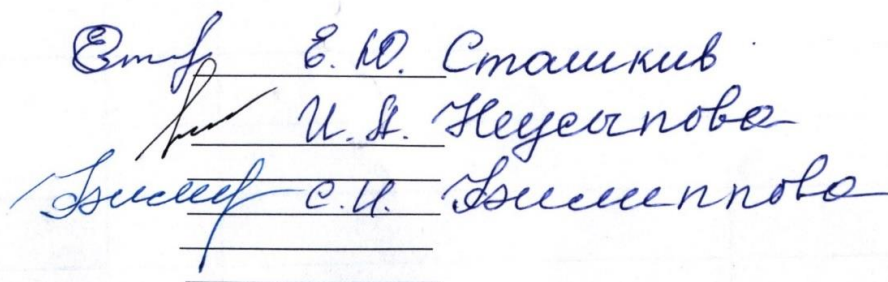 Е. Ю. Сташкив
И. А. Неусыпова
С. И. Филиппова